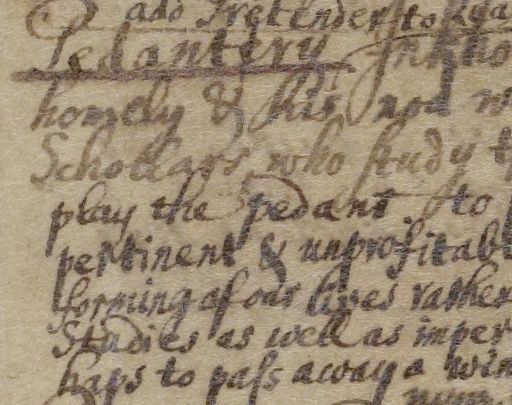 add Pretenders to
Pedantery
homely & his
Schollars who study
play the pedant to
pertinent & unprofitabl
forming of our lives rather
Studies as well as imper
haps to pass away a win